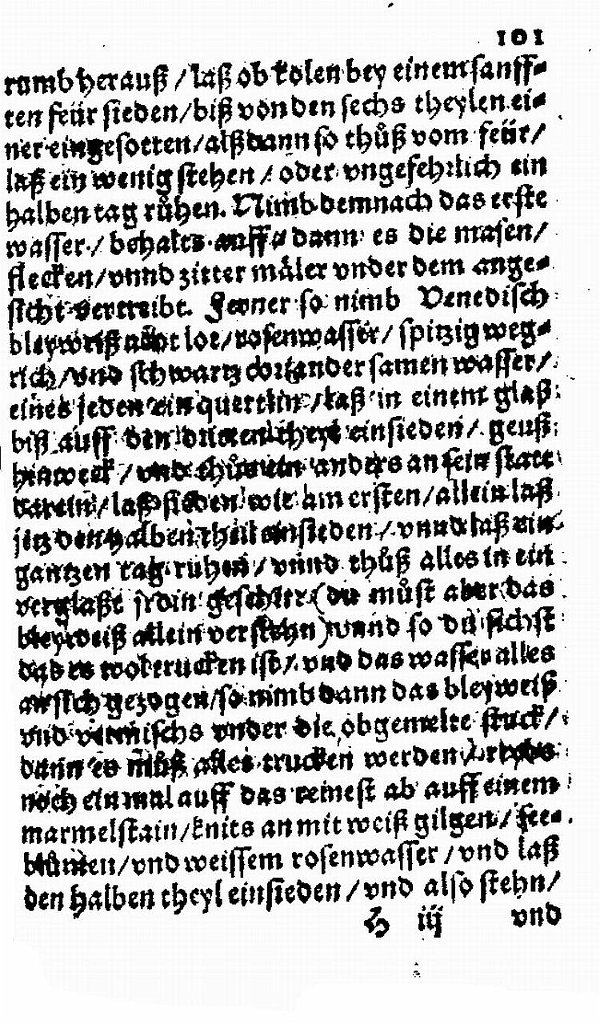 101
rumb herauß / laß ob kolen bey einem sanff-
ten feür sieden / biß von den sechs theylen ei-
ner eingesotten / alßdann so thůß vom feür /
laß ein wenig stehen / oder vngefehrlich ein
halben tag růhen. Nimb demnach das erste
wasser / behalts auff / dann es die masen /
flecken / vnnd zitter mäler vnder dem ange-
sicht vertreibt. Ferner so nimb Venedisch
bleyweiß acht lot / rosenwasser / spitzig weg-
rich / vnd schwartz coriander samen wasser /
eines jeden ein quertlin / laß in einem glaß
biß auff den dritten theyl einsieden / geuß
hinweck / vnd thů ein anders an sein statt
darein / laß sieden wie am ersten / allein laß
jetz den halben theil einsieden / vnnd laß ein
gantzen tag růhen / vnnd thůß alles in ein
verglaßt jrdin geschirr ( du můst aber das
bleyweiß allein verstehn ) vnnd so du sichst
das es wol trucken ist / vnd das wasser alles
an sich gezogen / so nimb dann das bleyweiß
vnd vermischs vnder die obgemelte stuck /
dann es můß alles trucken werden / reybs
noch ein mal auff das reinest ab auff einem
marmelstain / knits an mit weiß gilgen / see-
blůmen / vnd weissem rosenwasser / vnd laß
den halben theyl einsieden / vnd also stehn /
H iij vnd